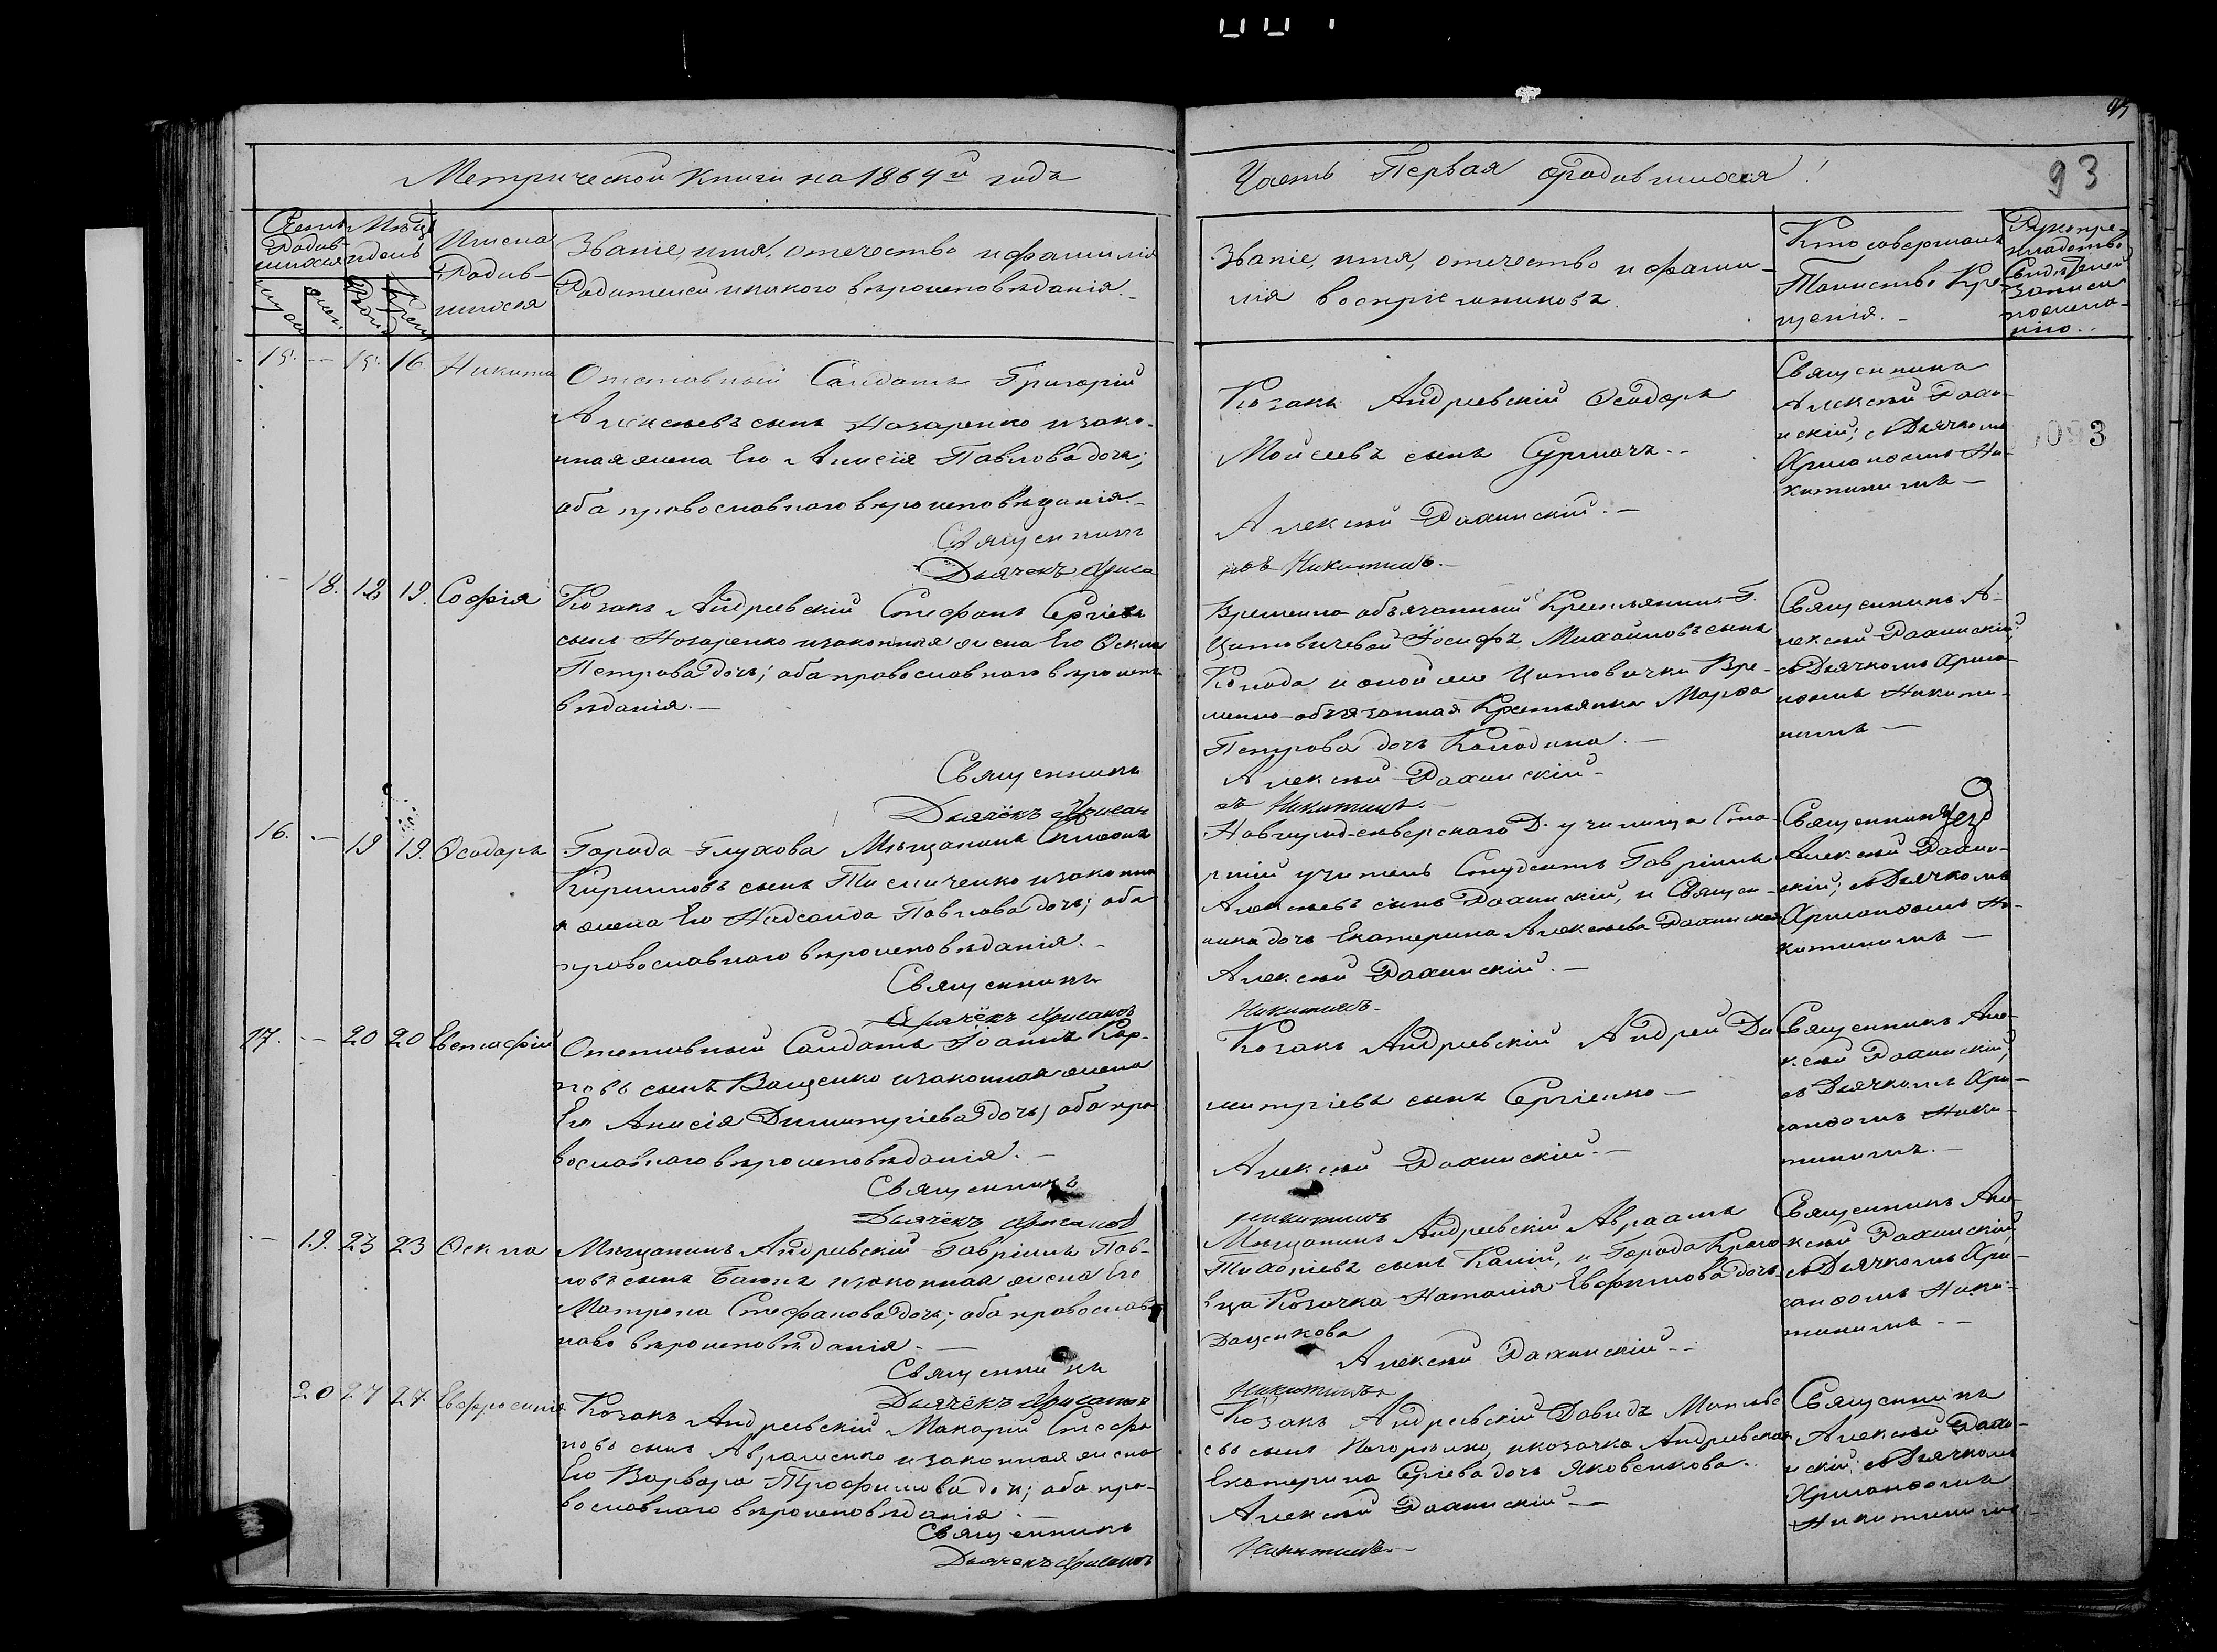 93
Метрической Книги на 1864й годъ
Часть Первая о родившихся!
93
Счетъ Родив-
шихся
Мѣсяцъ
и день
Имена
Родив-
шихся
Званіе, имя, отечество и фамилія
Родителей и какого вѣроисповѣданія.
Званіе, имя, отечество и фами-
лія воспріемниковъ.
Кто совершалъ
Таинство Кре-
щенія.
Рукопри-
кладство
Свидѣтелей
записи
по желанію
15. — 15. 16. Никита
Отставный Салдатъ Григорій
Алексѣевъ сынъ Назаренко и зако-
нная жена Его Анисія Павлова дочь;
оба православнаго вѣроисповѣданія.—
Священникъ
Дьячекъ Хриса
Козакъ Андреевскій Ѳеодоръ
Мойсеевъ сынъ Сурмачъ.
Алексѣй Рахинскій.—
Никитинъ.—
Священникъ
Алексѣй Рахи-
нскій; съ Дьячкомъ
Хрисанѳомъ Ни-
китинымъ—
0093
— 18. 18 19. Софія
Козакъ Андреевскій Стефанъ Сергіевъ
сынъ Назаренко и законная жена Его Ѳекла
Петрова дочь; оба православнаго вѣроиспо-
вѣданія.—
Священникъ
Дьячёкъ Хрисан
Временно-обязанный Крестьянинъ Г.
Цитовичевой Іосифъ Михайловъ сынъ
Колода и оной же Цитовички Вре-
менно-обязанная Крестьянка Марѳа
Петрова дочь Колодина.—
Алексѣй Рахинскій—
Никитинъ.—
Священникъ А-
лексѣй Рахинскій;
съ Дьячкомъ Хриса-
нѳомъ Никити-
нымъ—
16. — 19 19. Ѳеодоръ
Города Глухова Мѣщанинъ Симеонъ
Кирилловъ сынъ Тисниченко и законна
я жена Его Павлова дочь; оба
православнаго вѣроисповѣданія.—
Священникъ
Дьячёкъ Хрисанѳъ
Новгород-сѣверскаго Д. училища Ста-
ршій учитель Студентъ Гавріилъ
Алексѣевъ сынъ Рахинскій, и Священ-
ника дочь Екатерина Алексѣева Рахинская
Алексѣй Рахинскій.—
Никитинъ.
Священникъ
Алексѣй Рахин-
скій; съ Дьячкомъ
Хрисанѳомъ Ни-
китинымъ—
17. — 20 20 Евстафій
Отставный Салдатъ Іоаннъ Кар-
повъ сынъ Ващенко и законная жена
Его Анисія Димитріева дочь; оба пра-
вославнаго вѣроисповѣданія.—
Священникъ
Дьячёкъ Хрисанѳъ
Козакъ Андреевскій Андрей Ди-
митріевъ сынъ Сергіенко—
Алексѣй Рахинскій.—
Никитинъ
Священникъ Але-
ксѣй Рахинскій;
съ Дьячкомъ Хри-
санѳомъ Ники-
тинымъ.—
— 19. 23 23 Ѳекла
Мѣщанинъ Андреевскій Гавріилъ Пав-
ловъ сынъ и законная жена Его
Матрона Стефанова дочь; оба православ-
наго вѣроисповѣданія.—
Священникъ
Дьячёкъ Хрисанѳъ
Мѣщанинъ Андреевскій Авраамъ
сынъ и Города Кроле-
вца Козачка Наталія Евфимова дочь
Даценкова
Алексѣй Рахинскій—
Никитинъ
Священникъ Але-
ксѣй Рахинскій;
съ Дьячкомъ Хри-
санѳомъ Ники-
тинымъ.—
20 27 27. Евфросинія
Козакъ Андреевскій Макарій Стефа-
новъ сынъ Авраменко и законная жена
Его Варвара Трофимова дочь; оба пра-
вославнаго вѣроисповѣданія.—
Священникъ
Дьячекъ Хрисанѳъ
Козакъ Андреевскій Давидъ Матвѣ-
евъ сынъ и козачка Андреевская
Екатерина Сергіева дочь Яковенкова.
Алексѣй Рахинскій—
Никитинъ—
Священникъ
Алексѣй Рахи-
нскій; съ Дьячкомъ
Хрисанѳомъ
Никитинымъ—